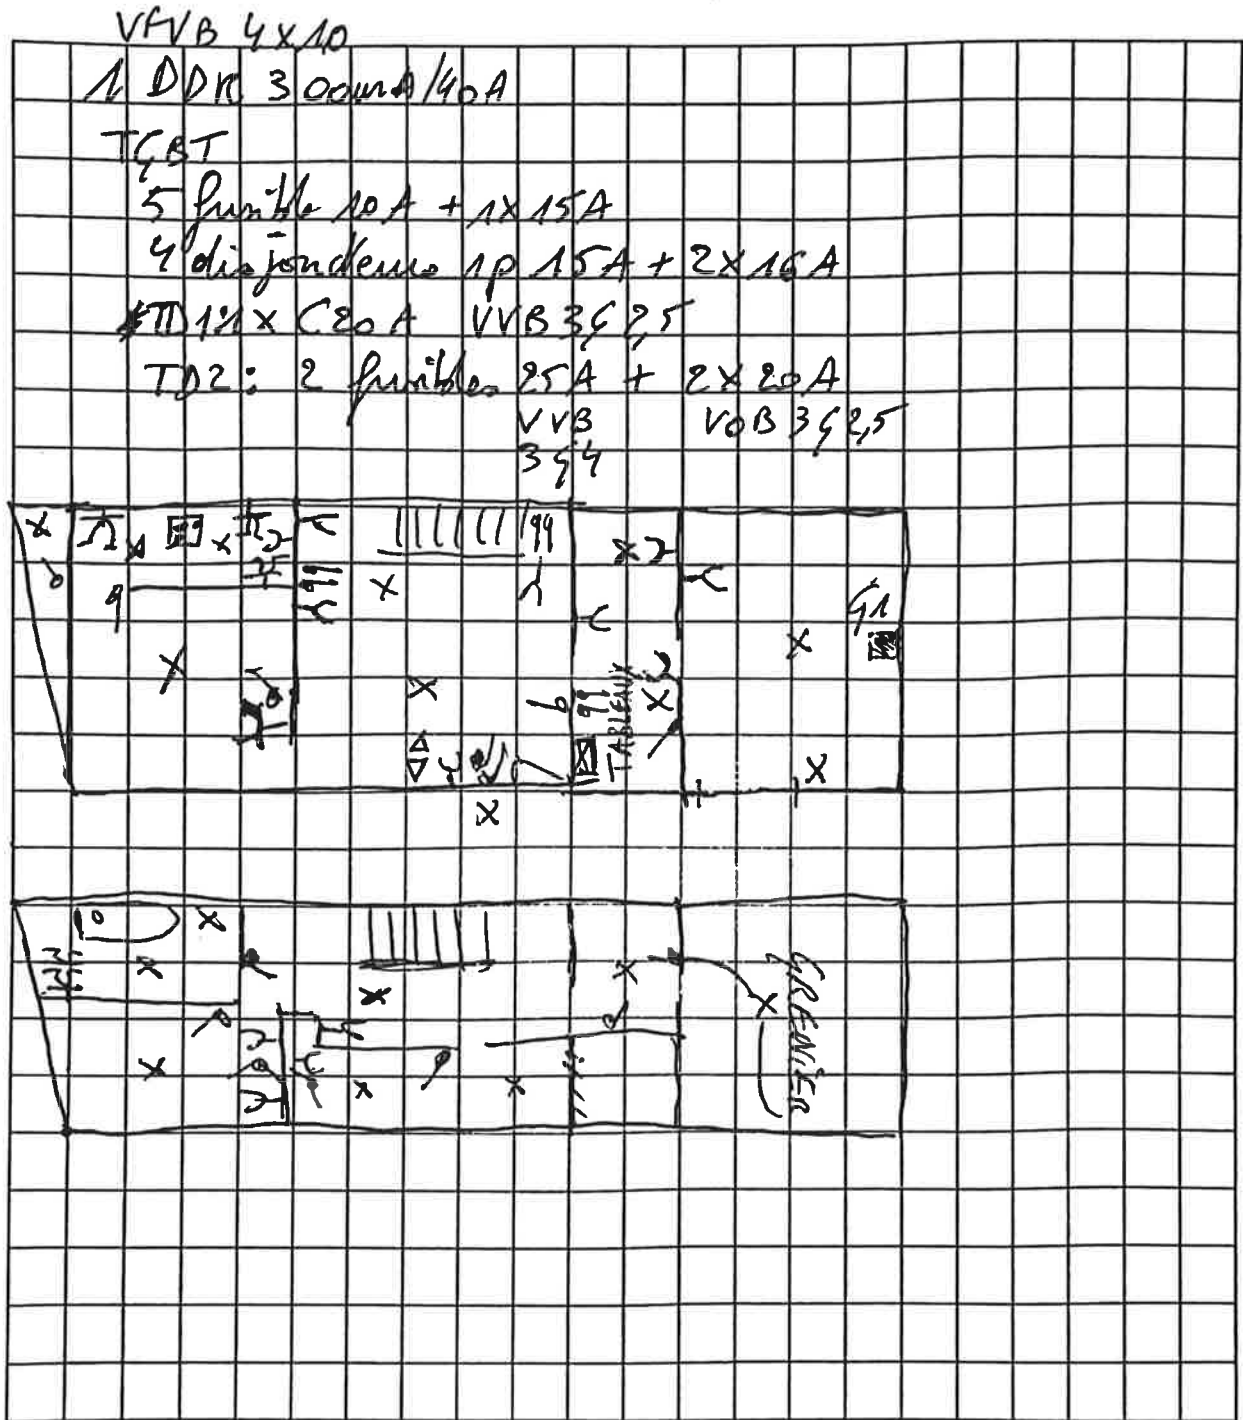 VFVB 4x10
1 DDR 300mA/40A
TGBT
5 fusible 10A + 1x 15A
4 disjoncteurs 1p 15A + 2x16A
TD1: 1x C20A VVB 3G2,5
TD2: 2 fusibles 25A + 2x20A
VVB VOB 3G2,5
3G4
G1
TABLEAUX
GRENIER